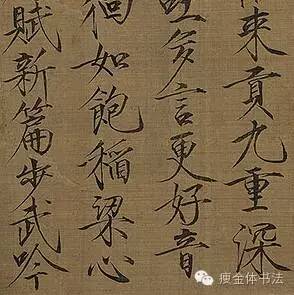 來貢九重深
吐多言更好音
徊如飽稻粱心
賦新篇步武吟
瘦金体书法